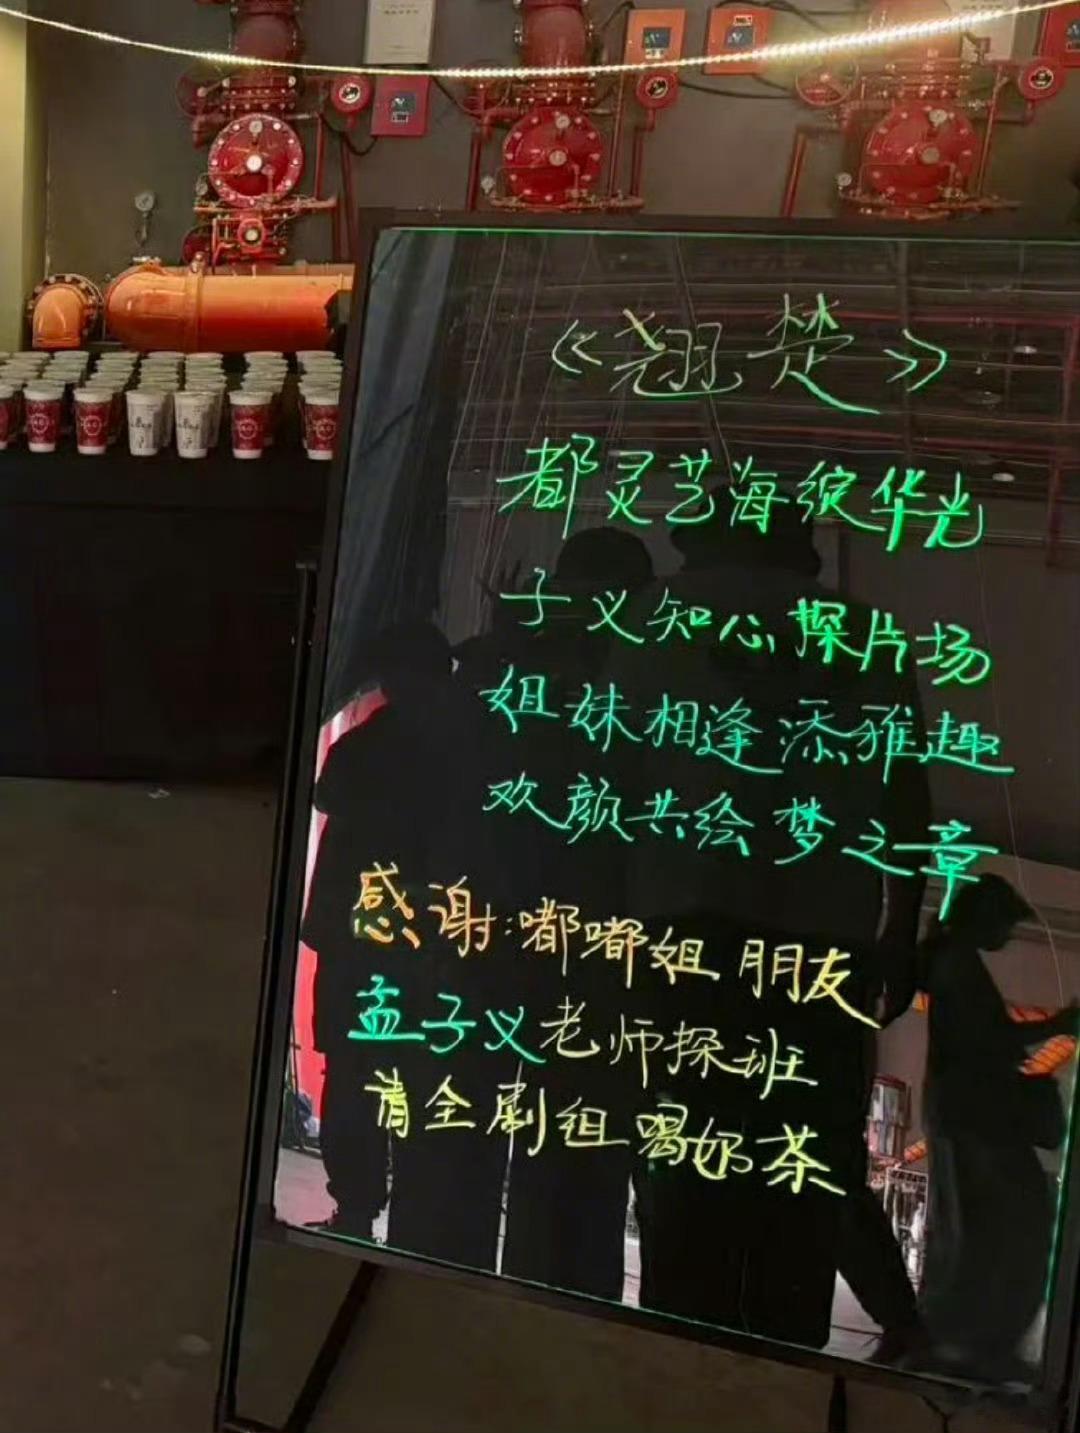 《翘楚》
都灵艺海绽华光
子义知心探片场
姐妹相逢添雅趣
欢颜共绘梦之章
感谢:嘟嘟姐朋友
孟子义老师探班
请全剧组喝奶茶